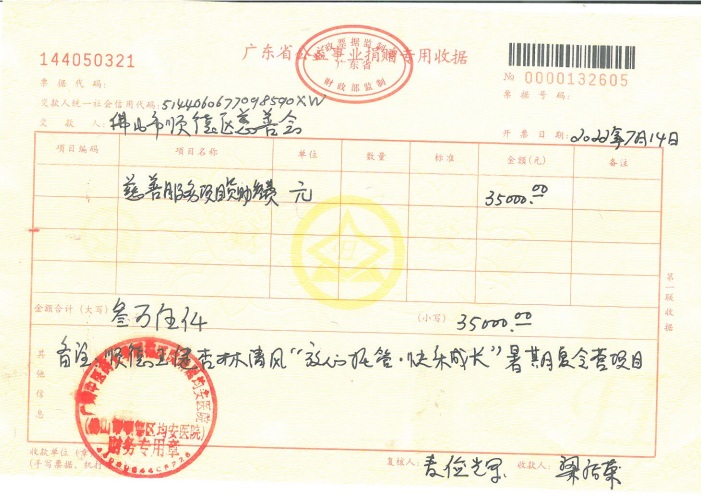 广东省公益事业捐赠专用收据
144050321
票据代码:
№ 0000132605
票据号码:
交款人统一社会信用代码:
交款人: 佛山市顺德区慈善会
开票日期: 2022年7月14日
项目编码 项目名称 单位 数量 标准 金额(元) 备注
慈善服务项目资助费 元 35000.00
金额合计(大写) 叁万伍仟 (小写) 35000.00
其他信息
备注: 顺德 杏林清风"放心托管·快乐成长"暑期夏令营项目
第一联 收据
区均安医院)
财务专用章
收款单位(章
(手写票据、机打
复核人: 收款人:
财政部监制
广东省